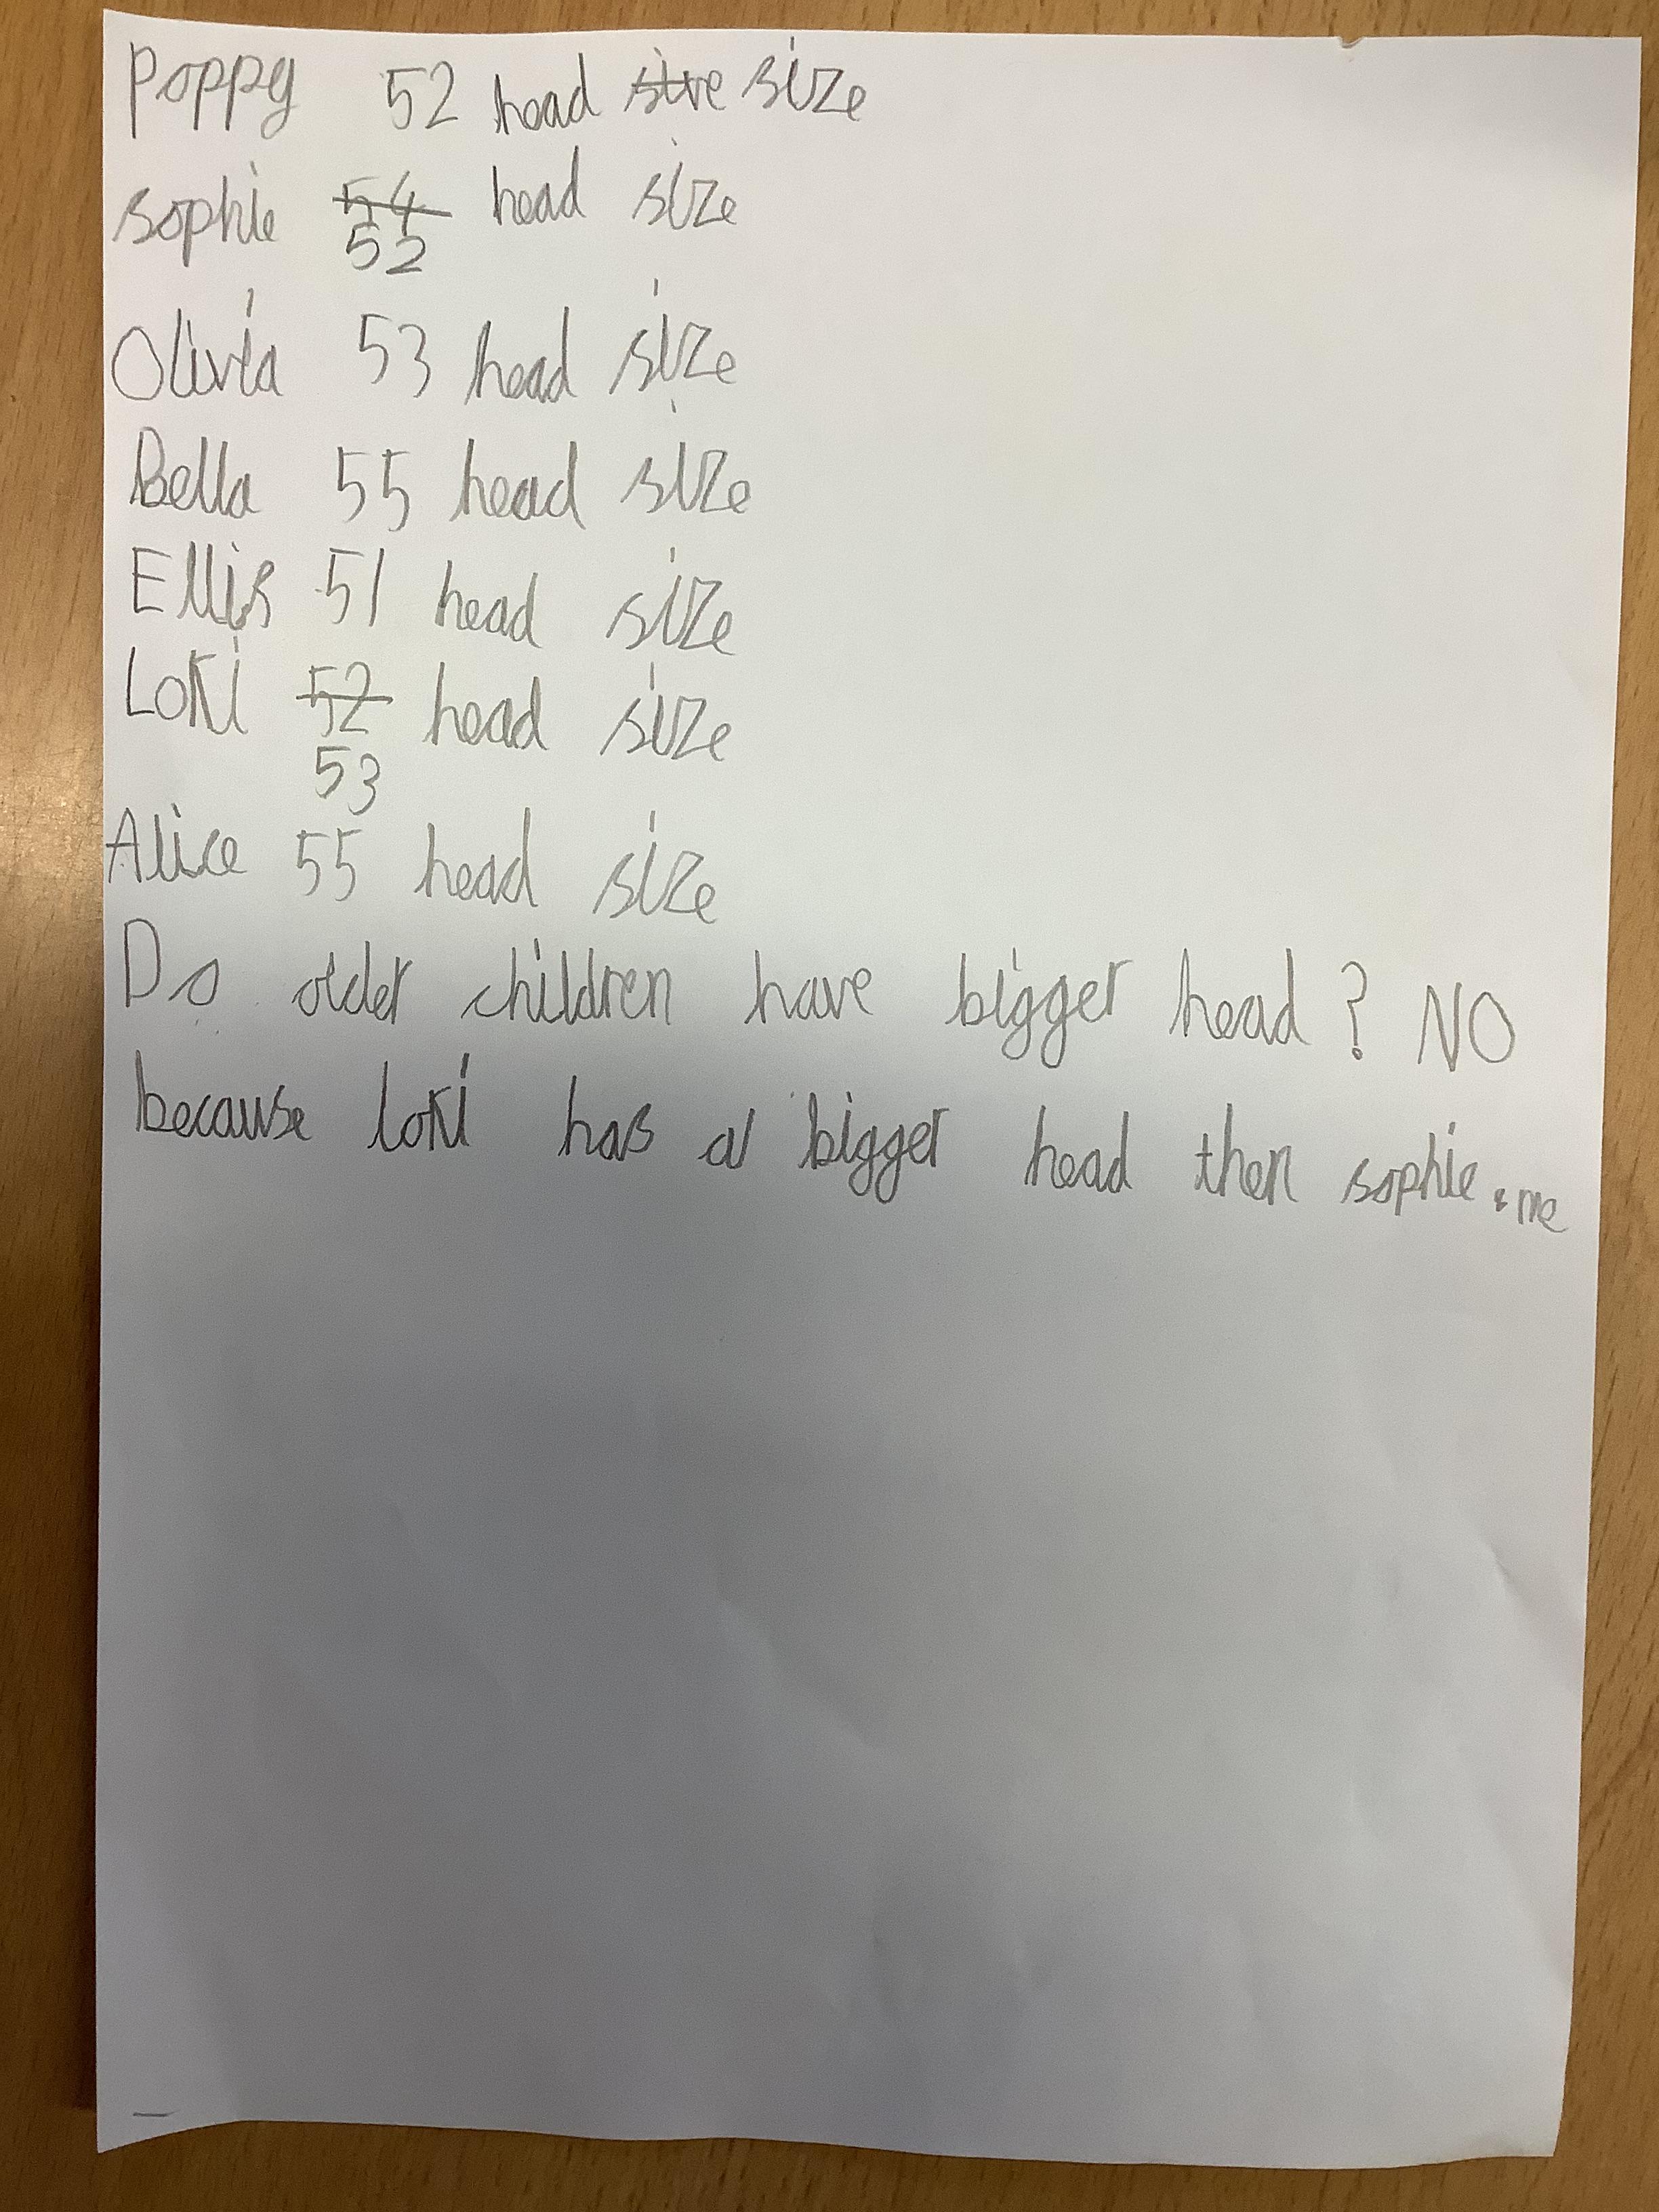 Poppy 52 head sive size
sophie 54 head size
52
Olivia 53 head size
Bella 55 head size
Ellis 51 head size
Loki 52 head size
53
Alice 55 head size
Do older children have bigger head? NO
because loki has a bigger head then sophie & me